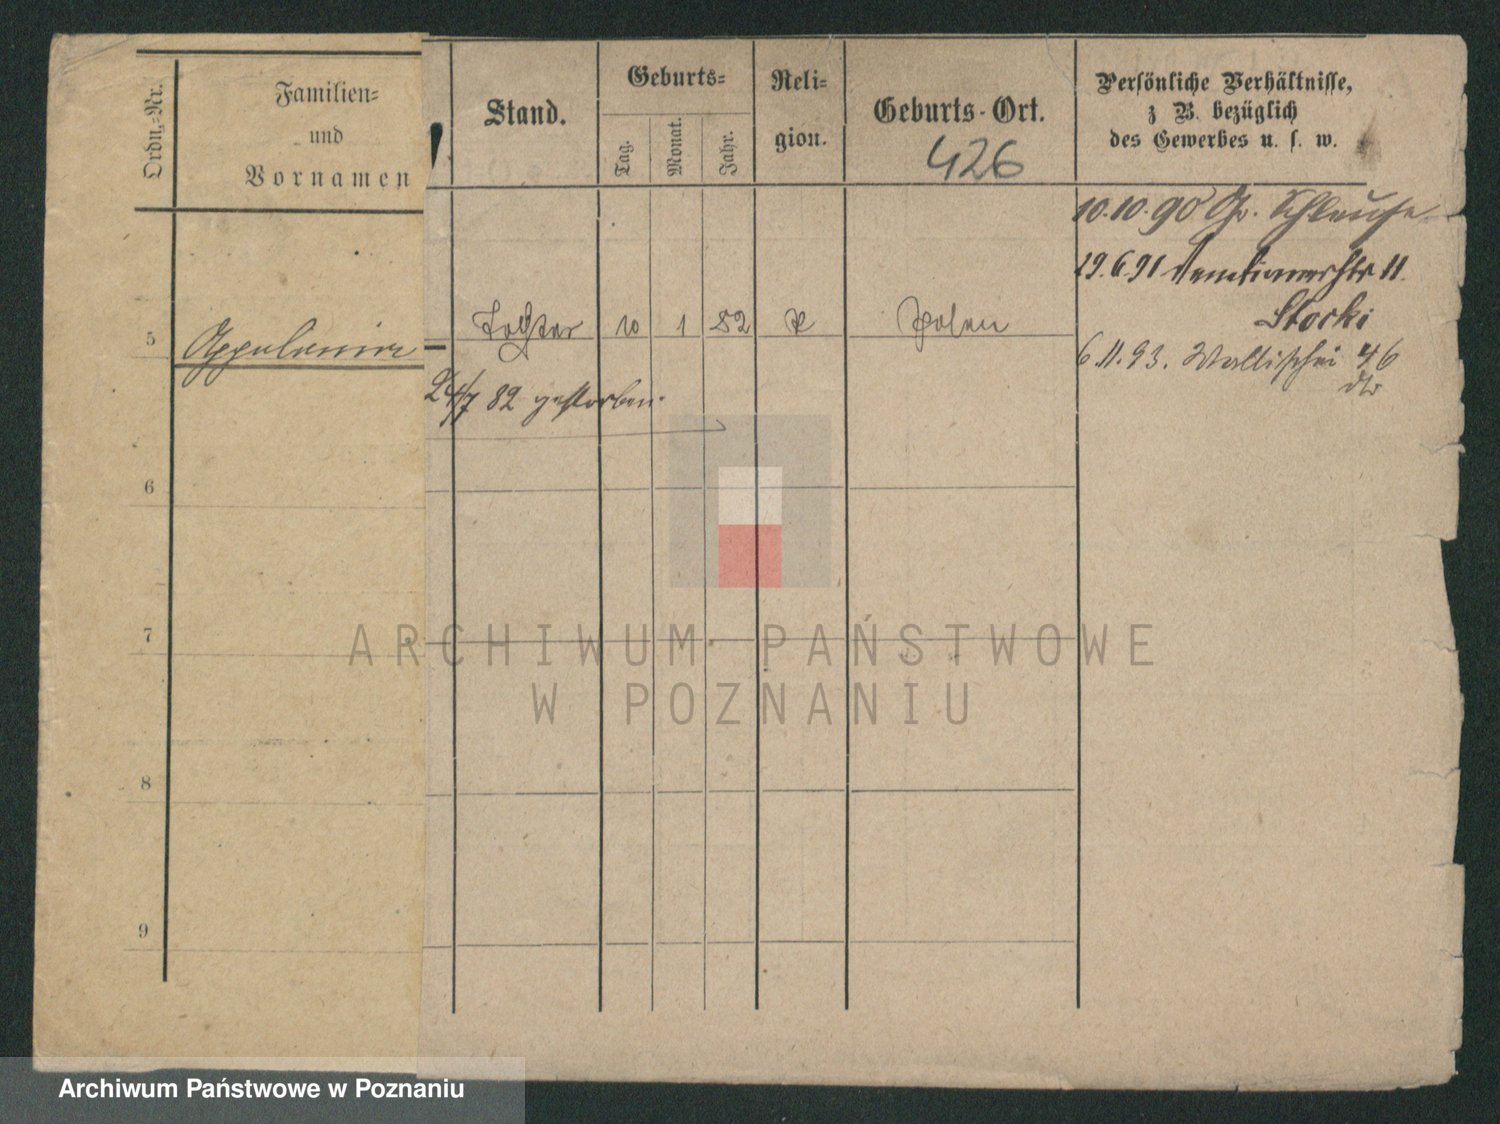 Ordn.-Nr.
Familien-
und
Vornamen
Stand.
Geburts-
Tag.
Monat.
Jahr.
Reli-
gion.
Geburts-Ort.
426
Persönliche Verhältnisse,
z. B. bezüglich
des Gewerbes u. s. w.
10.10.90 Gr. Schleuse
29.6.91 11.
Stocki
6.11.93. Wallischei 46
5 Appolonia Tochter 10 1 82 k Posen
24/7 82 gestorben.
6
7
8
9
ARCHIWUM PAŃSTWOWE
W POZNANIU
Archiwum Państwowe w Poznaniu